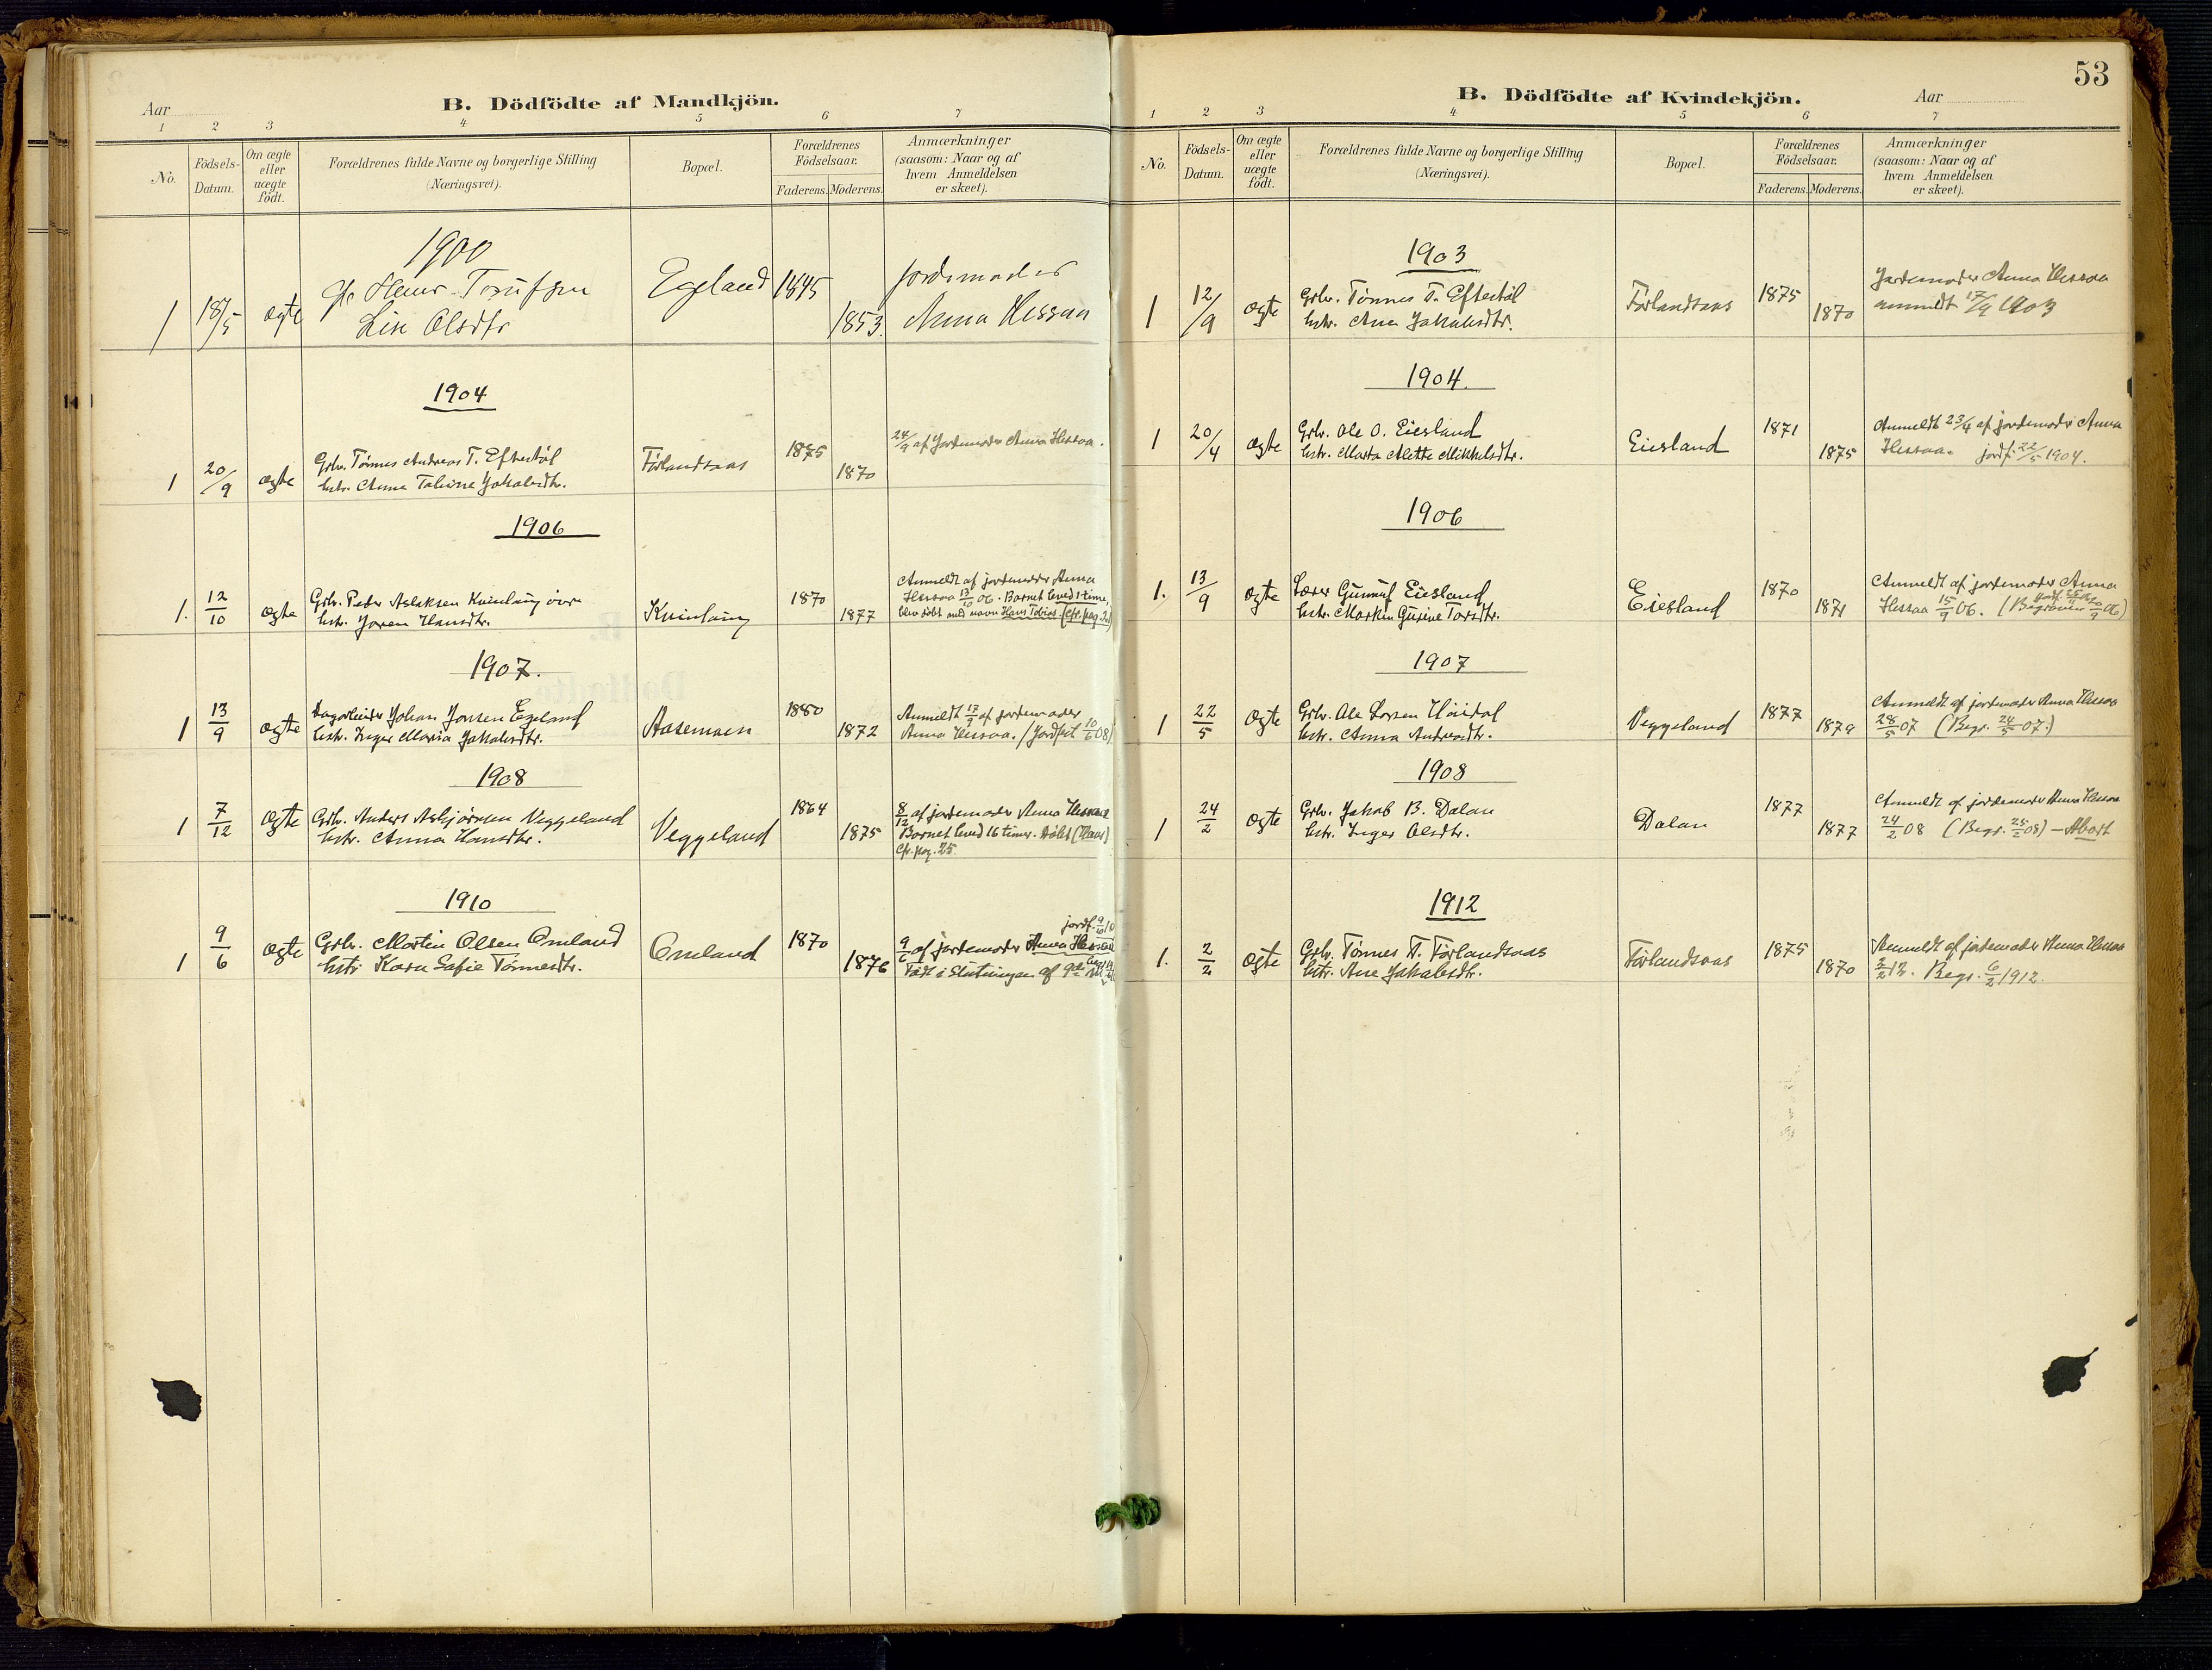 Aar
B. Dödfödte af Mandkjön.
1 2 3 4 5 6 7
No.
Födsels-Datum.
Om ægte eller uægte födt.
Forældrenes fulde Navne og borgerlige Stilling
(Næringsvei).
Bopæl.
Forældrenes Födselsaar.
Faderens. Moderens.
Anmærkninger
(saasom: Naar og af
hvem Anmeldelsen
er skeet).
1900
1 18/5 ægte
Lise Olsdtr
Egeland 1845 1853.
Jordemoder
Anna Hessaa
1904
1 20/9 ægte Grbr. Tønnes Andreas T. Eftestøl
hstr. Anne Taline Jakobsdtr.
Førlandsaas 1875 1870
24/9 af Jordemoder Anna Hessaa.
1906
1. 12/10 ægte Grbr. Peder Aslaksen Kvinlaug øvre
hstr. Joren Hansdtr.
Kvinlaug 1870 1877
Anmeldt af jordemoder Anna
Hessaa 13/10 06. Barnet leved 1 time,
blev døbt med navn Hans Tobias.
1907.
1 13/9 ægte Dagarbeider Johan Jonsen Egeland
hstr. Inger Maria Jakobsdtr.
Aasemoen 1880 1872
Anmeldt 17/9 af jordemoder
Anna Hessaa. (Jordfest 10/6 08)
1908
1 7/12 ægte Grbr. Anders Asbjørnsen Veggeland
hstr. Anna Hansdtr.
Veggeland 1864 1875
8/12 af jordemoder Anna Hessaa
Barnet leved 16 timer. Døbt (Hans)
Cfr. pag. 25.
1910
1 9/6 ægte Grbr. Martin Olsen Omland
hstr. Karn Sofie Tønnesdtr.
Omland 1870 1876
jordf.
9/6 af jordemoder Anna Hessaa
Født i Slutningen af 9de
53
B. Dödfödte af Kvindekjön.
Aar
1 2 3 4 5 6 7
No.
Födsels-Datum.
Om ægte eller uægte födt.
Forældrenes fulde Navne og borgerlige Stilling
(Næringsvei).
Bopæl.
Forældrenes Födselsaar.
Faderens. Moderens.
Anmærkninger
(saasom: Naar og af
hvem Anmeldelsen
er skeet).
1903
1 12/9 ægte Grbr. Tønnes T. Eftestøl
hstr. Ane Jakobsdtr.
Førlandsaas 1875 1870
Jordemoder Anna Hessaa
anmeldt 17/9 1903
1904.
1 20/4 ægte Grbr. Ole O. Eiesland
hstr. Marta Alette Mikkelsdtr.
Eiesland 1871 1875
Anmeldt 23/4 af jordemoder Anna
Hessaa. jordf. 22/5 1904.
1906
1. 13/9 ægte Lærer Gunnuf Eiesland
hstr. Martin Gurine Torsdtr.
Eiesland 1870 1871
Anmeldt af jordemoder Anna
Hessaa 15/9 06.
1907
1 22/5 ægte Grbr. Ole Larsen Høidal
hstr. Anna Andreasdtr.
Veggeland 1877 1879
Anmeldt af jordemoder Anna Hessaa
28/5 07 (Begr. 24/5 07.)
1908
1 24/2 ægte Grbr. Jakob B. Dalan
hstr. Inger Olsdtr.
Dalan 1877 1877
Anmeldt af jordemoder Anna Hessaa
24/2 08 (Begr. 25/2 08) – Abort
1912
1. 2/2 ægte Grbr. Tønnes A. Førlandsaas
hstr. Ane Jakobsdtr.
Førlandsaas 1875 1870
Anmeldt af jordemoder Anna Hessaa
3/2 12. Begr. 6/2 1912.